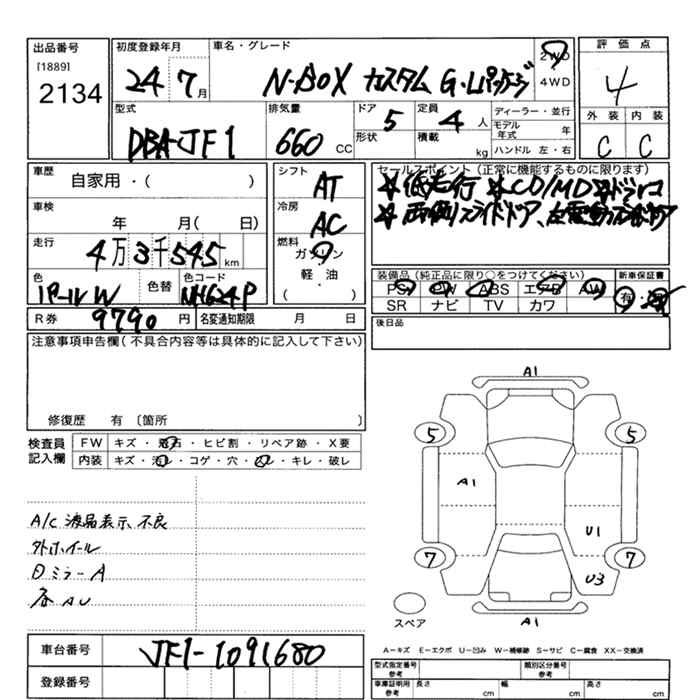 出品番号
[1889]
2134
初度登録年月
24 7月
車名・グレード
N-BOX カスタム G・Lパッケージ
2WD
4WD
評価点
4
外装 内装
C C
型式
DBA-JF1
排気量
660 CC
ドア 5
形状
定員 4 人
積載 kg
ディーラー・並行
モデル年式 年
ハンドル 左・右
車歴
自家用・( )
車検
年 月( 日)
走行
4万3千545 km
色
パールW
色替
色コード
NH624P
シフト
AT
冷房
AC
燃料
ガソリン
軽・油
( )
セールスポイント(正常に機能するものに限ります)
☆低走行 ☆CD/MD
☆両側スライドドア、左電動
装備品(純正品に限り○をつけてください)
PS PW ABS エアB AW
SR ナビ TV カワ
新車保証書
有・無
R券 9790 円 名変通知期限 月 日
後日品
注意事項申告欄(不具合内容等は具体的に記入して下さい)
修復歴 有〔箇所
検査員記入欄
FW キズ・飛石・ヒビ割・リペア跡・X要
内装 キズ・汚レ・コゲ・穴・スレ・キレ・破レ
A/C 液晶表示不良
外ホイール
ミラーA
各AU
A1
5 5
A1
U1
7 7
U3
スペア
A1
A-キズ E-エクボ U-凹み W-補修跡 S-サビ C-腐食 XX-交換済
車台番号
JF1-1091680
登録番号
型式指定番号
参考
類別区分番号
参考
車庫証明用
参考
長さ cm 幅 cm 高さ cm